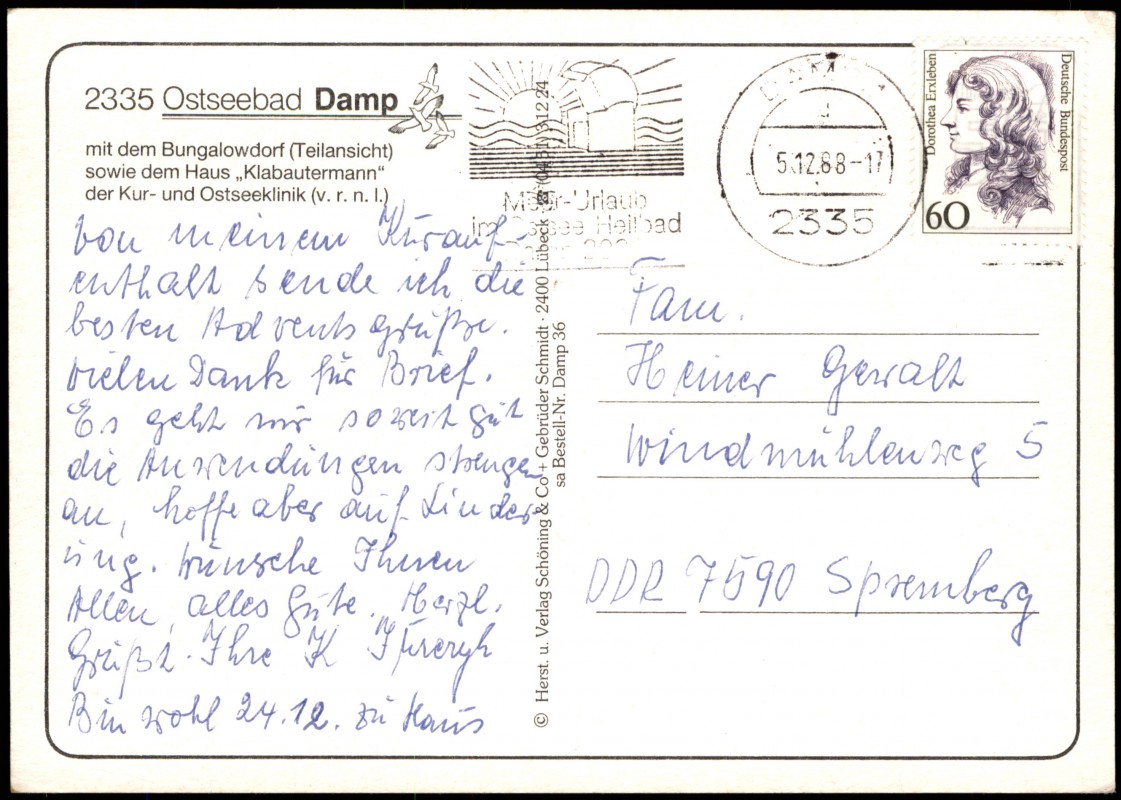 2335 Ostseebad Damp
mit dem Bungalowdorf (Teilansicht)
sowie dem Haus „Klabautermann"
der Kur- und Ostseeklinik (v. r. n. l.)
Von meinem Kurauf-
enthalt sende ich die
besten Adventsgrüße.
Vielen Dank für Brief.
Es geht mir soweit gut
die Anwendungen strengen
an, hoffe aber auf Linder
ung. Wünsche Ihnen
Allen, alles Gute. Herzl.
Grüßt. Ihre K
Bin wohl 24.12. zu Haus
© Herst. u. Verlag Schöning & Co + Gebrüder Schmidt · 2400 Lübeck ☎ (0451) 31224
sa Bestell-Nr. Damp 36
Meer-Urlaub
im Ostsee Heilbad
5.12.88-17
2335
Dorothea Erxleben
Deutsche Bundespost
60
Fam.
Heiner Gewalt
Windmühlenweg 5
DDR 7590 Spremberg